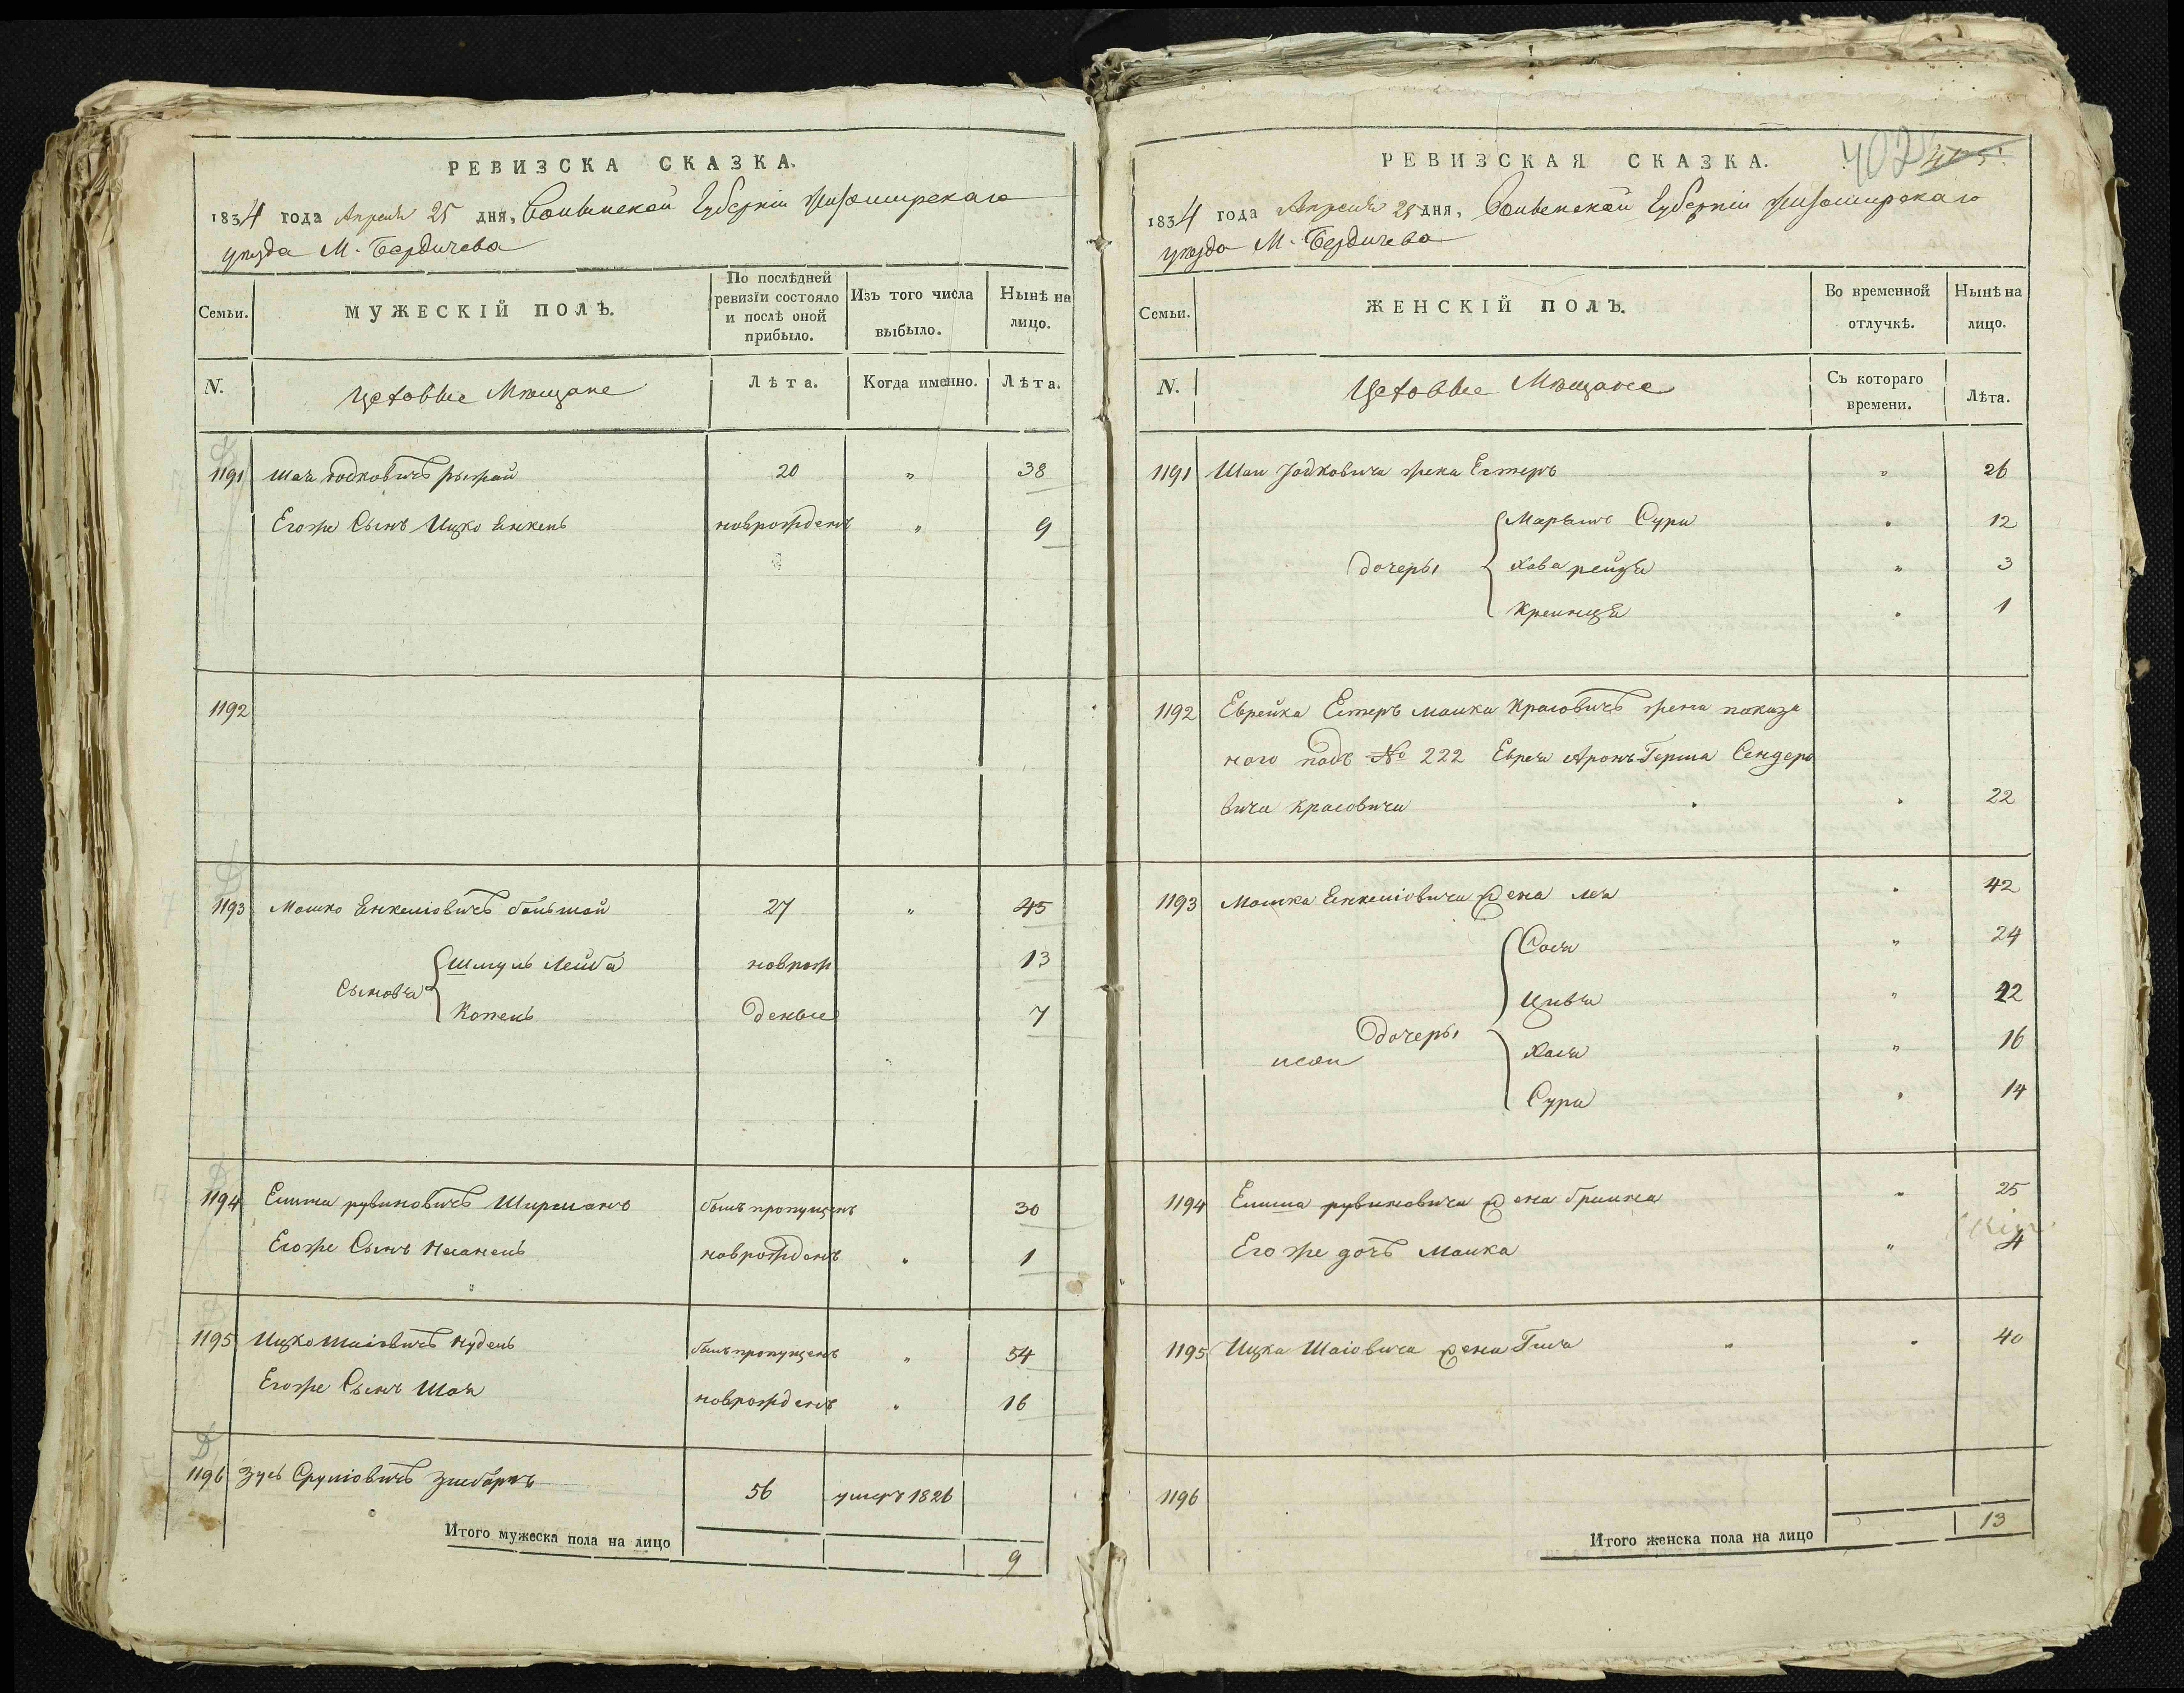 РЕВИЗСКА СКАЗКА.
1834 года Апреля 25 дня, Волынской Губерніи Житомирскаго
уезда М. Бердичева
Семьи.
МУЖЕСКІЙ ПОЛЪ.
По послѣдней ревизїи состояло и послѣ оной прибыло.
Изъ того числа выбыло.
Нынѣ на лицо.
N.
Цеховые Мещане
Лѣта.
Когда именно.
Лѣта.
1191 Шая Юдковичъ Рыжой 20 " 38
Егоже Сынъ Ицко Енкель новрожденъ " 9
1192
1193 Мошко Енкеліовичъ большой 27 " 45
Сыновья
Шмуль Лейба новрож 13
Копель деные 7
1194 Елиша рувиновичъ Ширманъ былъ пропущенъ 30
Егоже Сынъ новрожденъ " 1
1195 Ицко Шаіовичъ Нудель былъ пропущенъ " 54
Егоже Сынъ Шая новрожденъ " 16
1196 Зусь Сруліовичъ 56 умеръ 1826
Итого мужеска пола на лицо 9
РЕВИЗСКАЯ СКАЗКА.
402 405
1834 года Апреля 25 дня, Волынской Губерніи Житомирскаго
уезда М. Бердичева
Семьи.
ЖЕНСКІЙ ПОЛЪ.
Во временной отлучкѣ.
Нынѣ на лицо.
N.
Цеховые Мещане
Съ котораго времени.
Лѣта.
1191 Шаи Юдковича жена Естеръ " 26
дочеры
Марьямъ Сура " 12
Хава рейзя " 3
Креинця " 1
1192 Еврейка Естеръ Малка Красовичъ жена показа
ного подъ № 222 Еврея Аронъ Герша Сендеро
вича Красовича " 22
1193 Мошка Енкеліовича жена Лея " 42
дочеры
Сося " 24
Цивья " 22
Хася " 16
Сура " 14
1194 Елиша рувиновича жена " 25
Его же дочъ Малка " 4
1195 Ицка Шаіовича жена Гитя " 40
1196
Итого женска пола на лицо 13